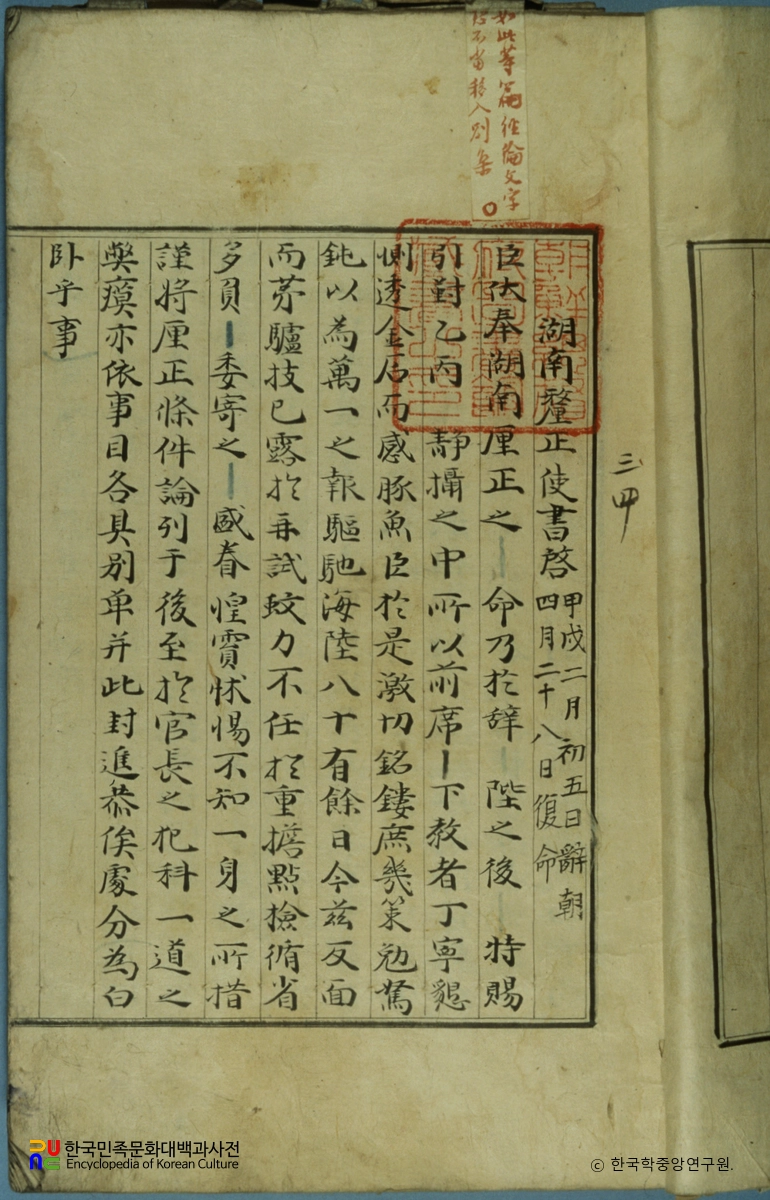 如此等篇經綸文字
不當移入別集
三甲
湖南釐正使書啓 甲戌二月初五日辭朝
四月二十八日復命
臣伏奉湖南厘正之 命乃於辭 陛之後 特賜
引對乙丙 靜攝之中所以前席 下教者丁寧懇
惻透金石而感豚魚臣於是激切銘鏤庶幾策勉駑
鈍以為萬一之報驅馳海陸八十有餘日今玆反面
而黔驢技已露於再試蚊力不任於重擔點檢循省
多負 委寄之 盛眷惶霣怵惕不知一身之所措
謹將厘正條件論列于後至於官長之犯科一道之
弊瘼亦依事目各具別單并此封進恭俟處分為白
臥乎事
한국민족문화대백과사전
Encyclopedia of Korean Culture
ⓒ 한국학중앙연구원.